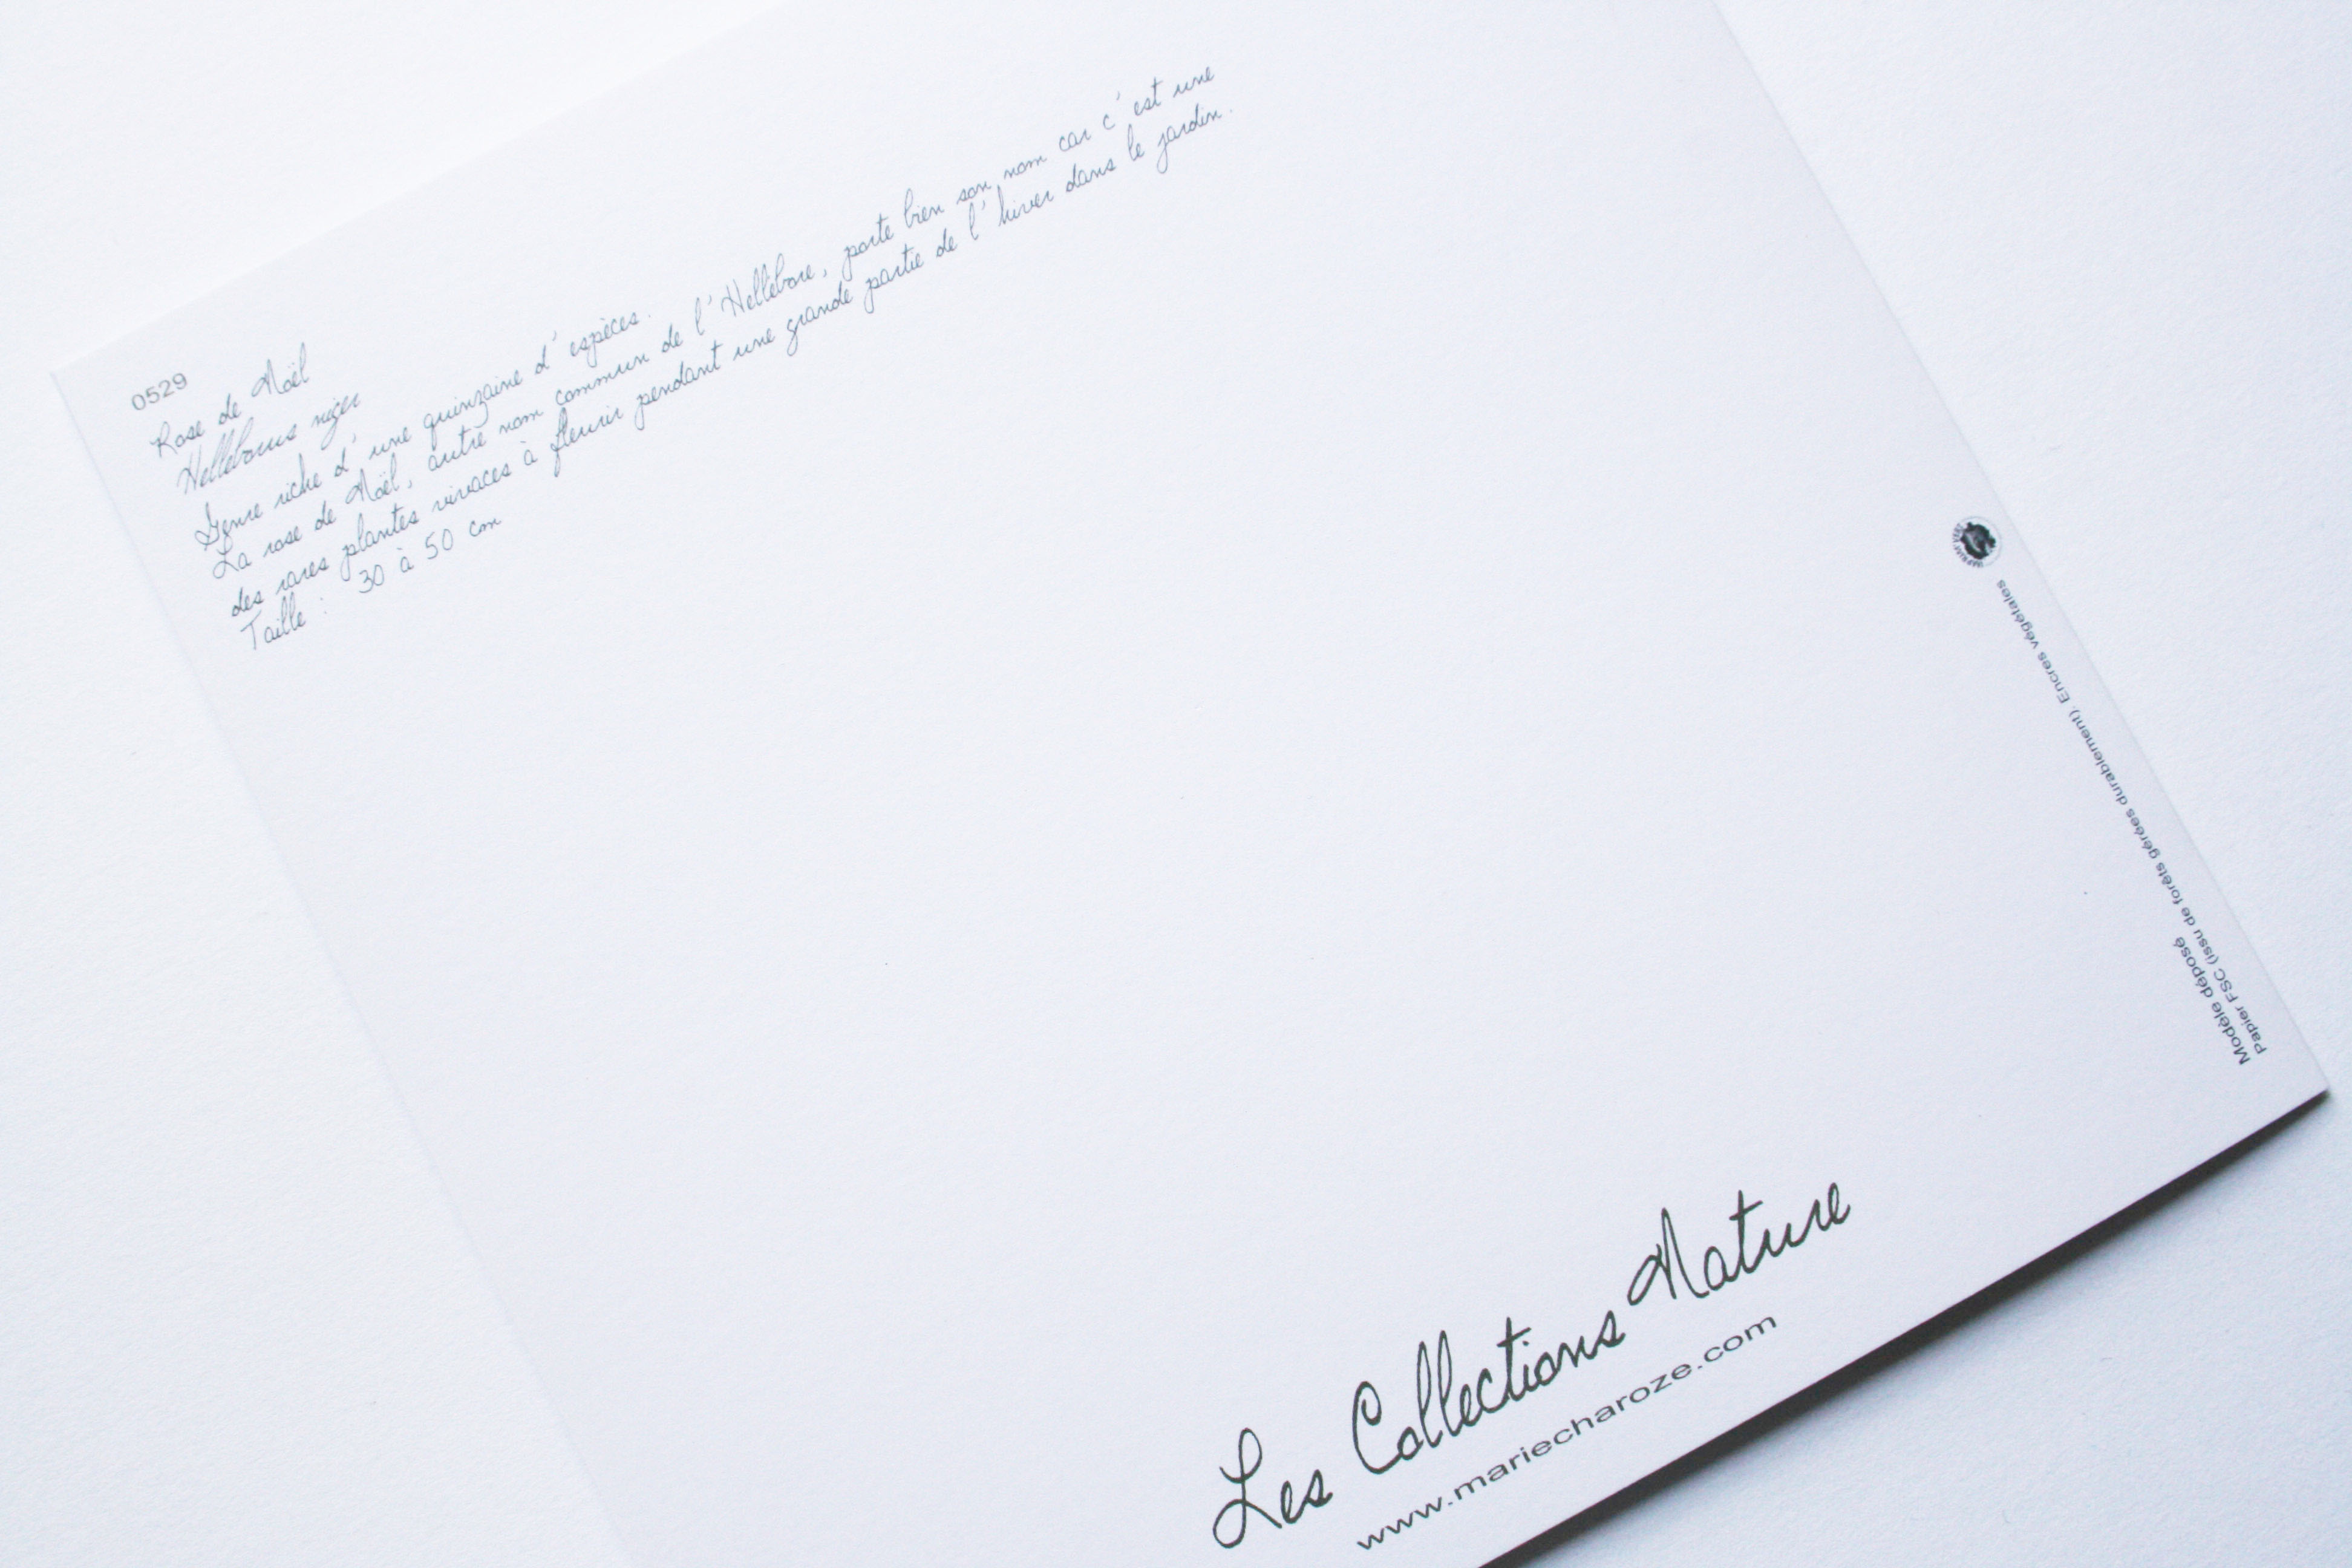 0529
Rose de Noël
Helleborus niger
Genre riche d'une quinzaine d'espèces.
La rose de Noël, autre nom commun de l'Hellébore, porte bien son nom car c'est une
des rares plantes vivaces à fleurir pendant une grande partie de l'hiver dans le jardin.
Taille : 30 à 50 cm
Modèle déposé
Papier FSC (issu de forêts gérées durablement). Encres végétales
Les Collections Nature
www.mariecharoze.com